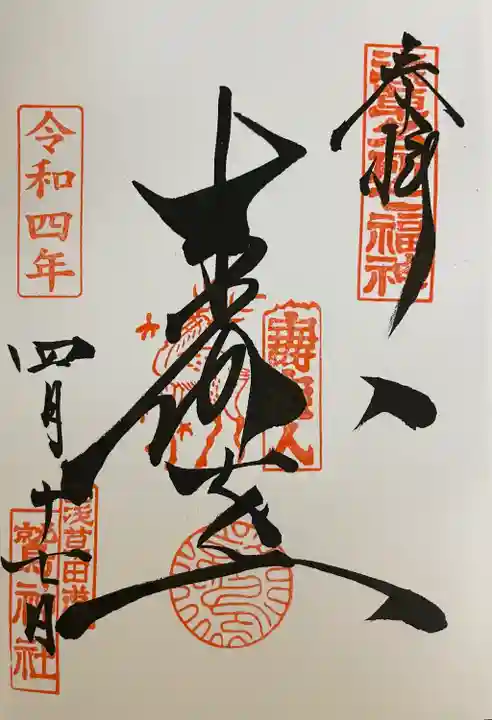 奉拝
浅草名所七福神
壽老人
壽老人
令和四年
四月十七日
浅草田甫
鷲神社